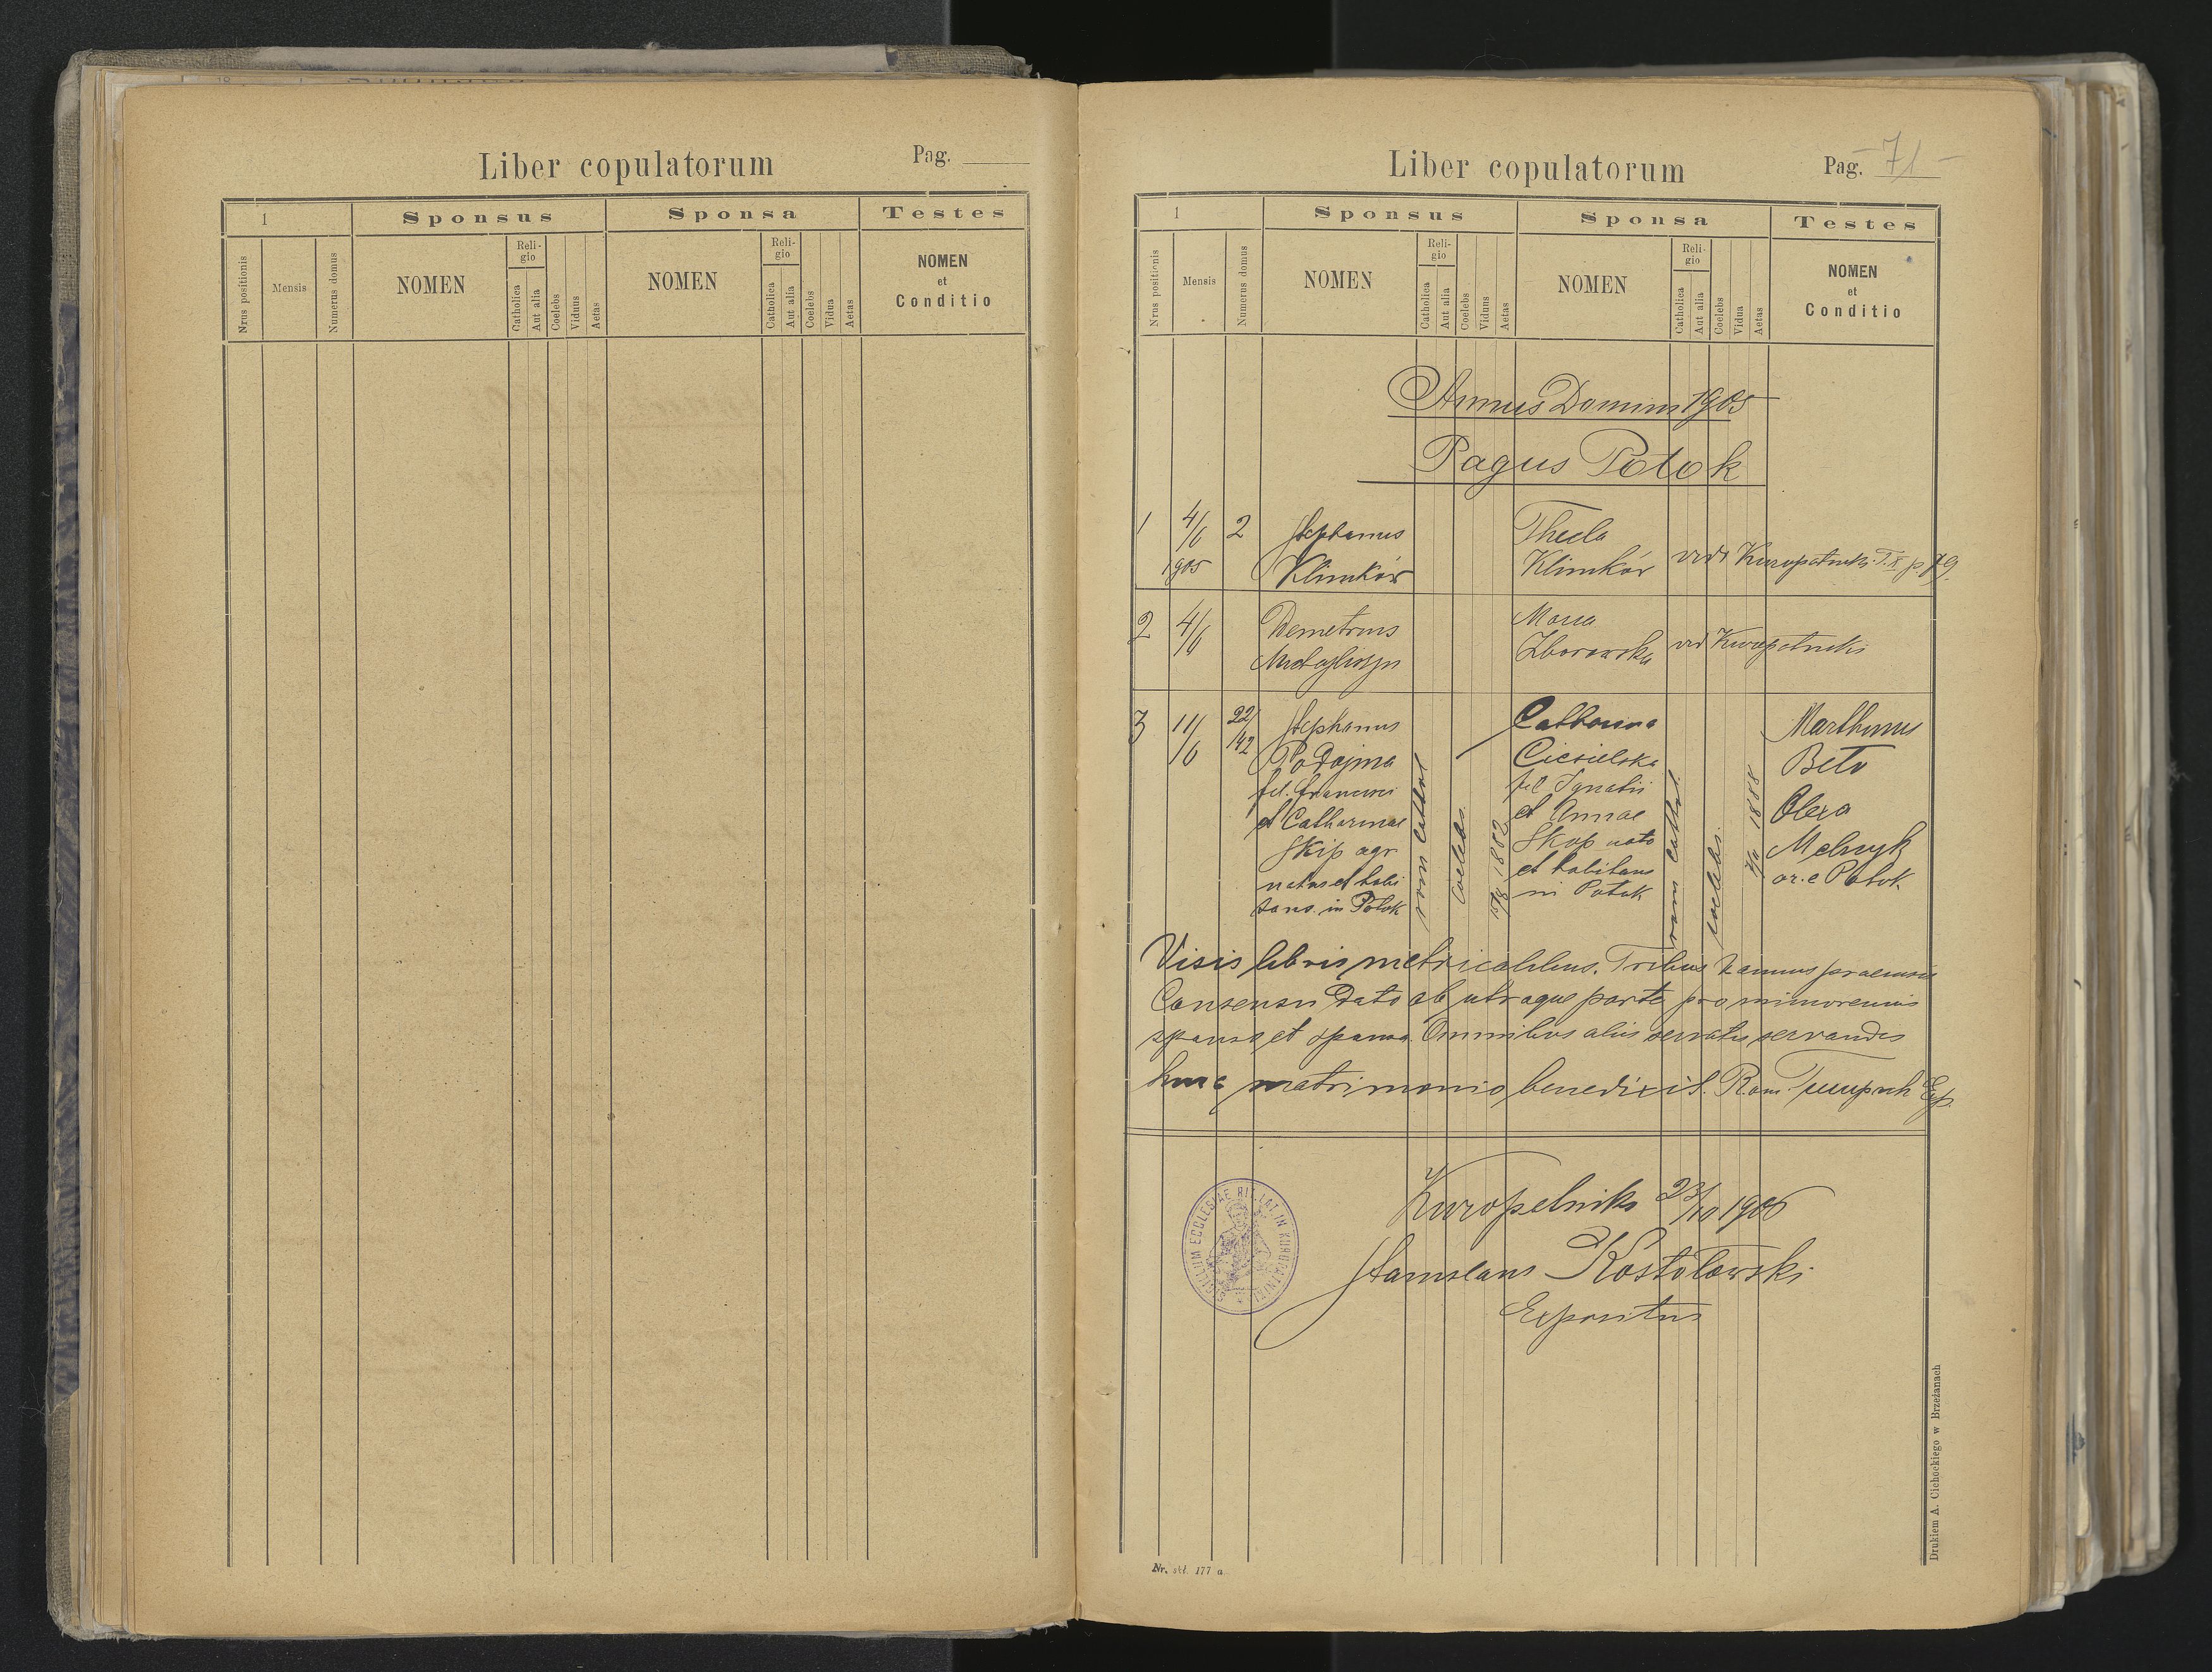 Liber copulatorum
Pag.
1
Sponsus
Sponsa
Testes
Nrus positionis
Mensis
Numerus domus
NOMEN
Reli-
gio
Catholica
Aut alia
Coelebs
Viduus
Aetas
NOMEN
Reli-
gio
Catholica
Aut alia
Coelebs
Vidua
Aetas
NOMEN
et
Conditio
Liber copulatorum
Pag. -71-
1
Sponsus
Sponsa
Testes
Nrus positionis
Mensis
Numerus domus
NOMEN
Reli-
gio
Catholica
Aut alia
Coelebs
Viduus
Aetas
NOMEN
Reli-
gio
Catholica
Aut alia
Coelebs
Vidua
Aetas
NOMEN
et
Conditio
Annus Domini 1905
Pagus Potok
1 4/6 2 Stephanus Thecla
1905 Klimków Klimków p. 79.
2 4/6 Demetrius Maria
Zborowska
3 11/6 22/42 Stephanus Catharina Marthinus
Podojma Ciesielska Beto
fil. Francisci fil Ignatii Olexa
et Catharinae et Annae Melnyk
Skip agr Skop nata or. e Potok
natus et habi et habitans
tans. in Potok in Potok
rom cathol
coelebs.
1882
rom cathol.
coelebs.
1888
Visis libris metricalibus. Tribus bannis praemissis
Consensu dato ab utraque parte pro minorennis
sponso et sponsa. Omnibus aliis servatis servandis
huic matrimonio benedixit. Rom. Exp.
Kuropatniki 23/10 1906
Stanislaus Kostołowski
Expositus
SIGILLUM ECCLESIAE RIT. LAT. IN KUROPATNIKI
Nr. skł. 177 a.
Drukiem A. Cichockiego w Brzeżanach